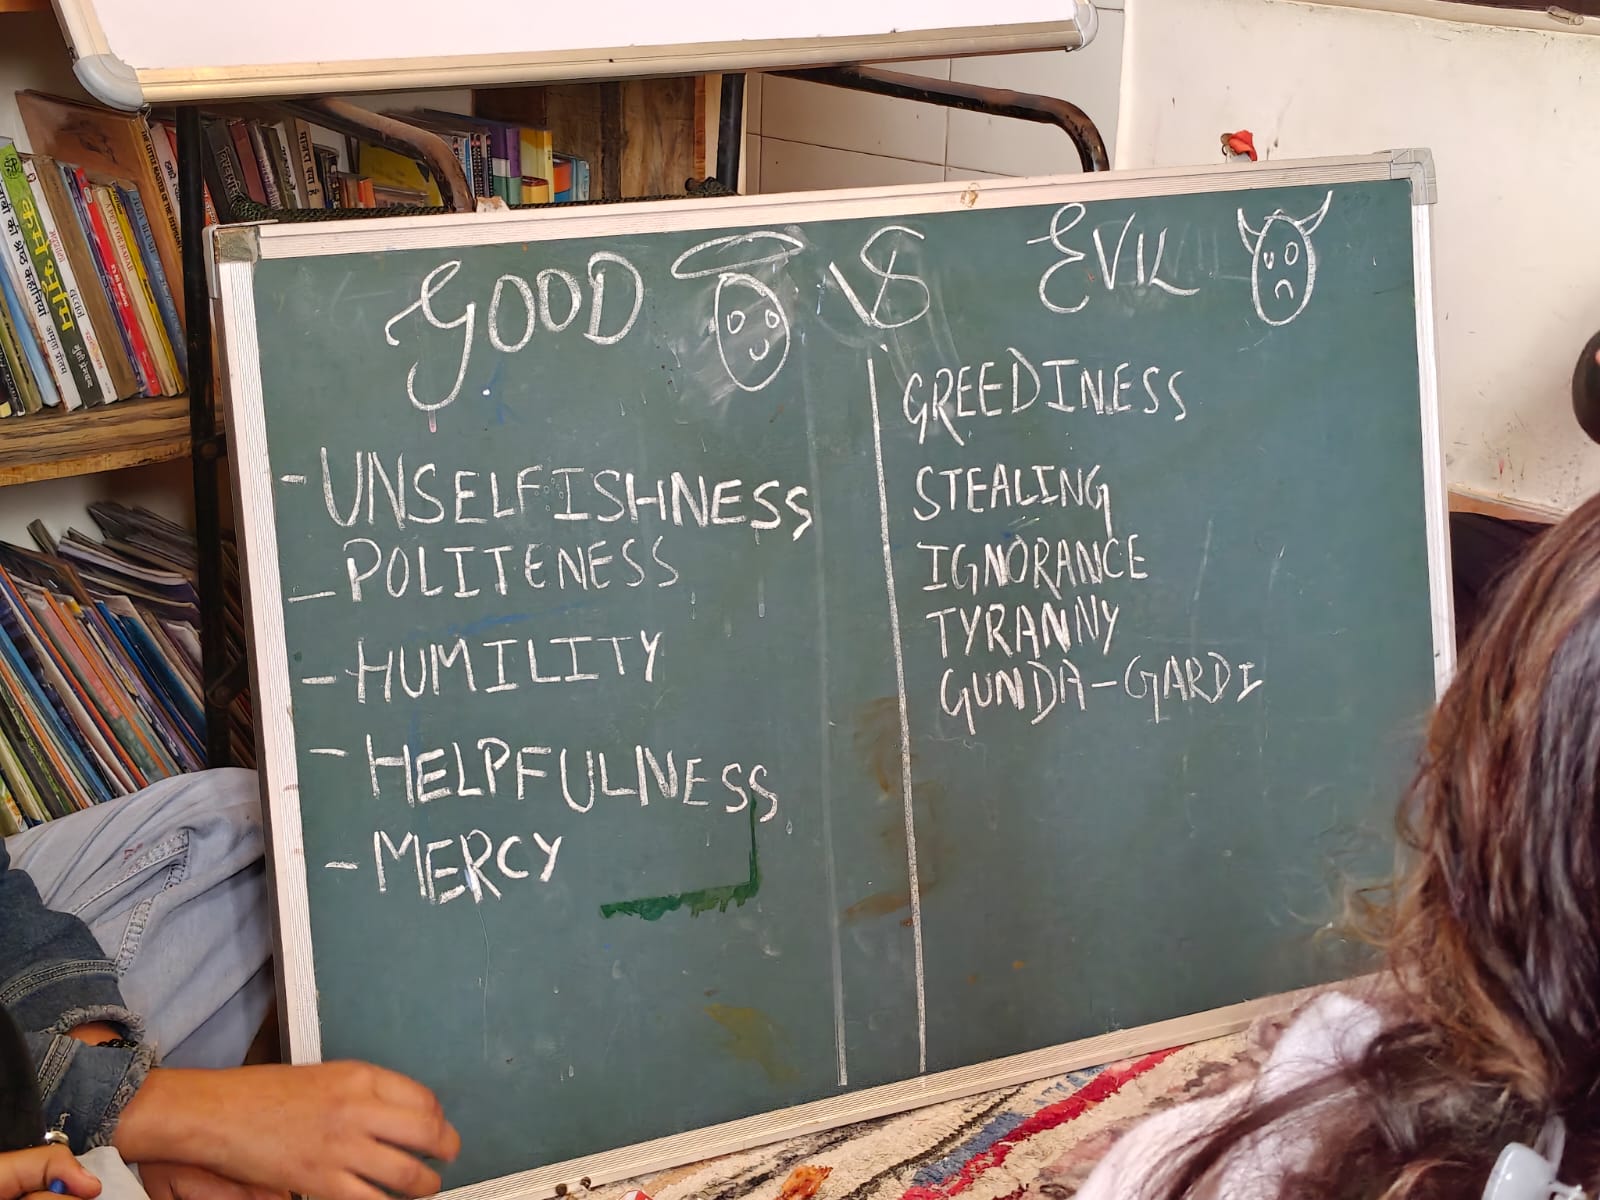 GOOD VS EVIL
- UNSELFISHNESS
- POLITENESS
- HUMILITY
- HELPFULNESS
- MERCY
GREEDINESS
STEALING
IGNORANCE
TYRANNY
GUNDA-GARDI